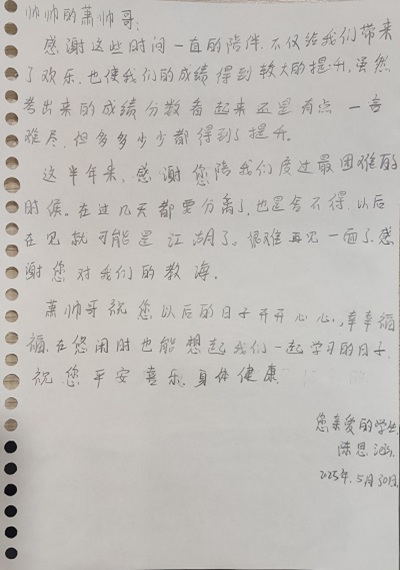 帅帅的萧帅哥:
感谢这些时间一直的陪伴.不仅给我们带来
了欢乐.也使我们的成绩得到较大的提升.虽然
考出来的成绩分数看起来还是有点一言
难尽.但多多少少都得到了提升。
这半年来、感谢您陪我们度过最困难的
时候。在过几天都要分离了,也是舍不得.以后
在见就可能是江湖了。很难再见一面了.感
谢您对我们的教海。
萧帅哥祝您以后的日子开开心心、幸幸福
福.在您闲时也能想起我们一起学习的日子.
祝您平安喜乐.身体健康
您亲爱的学生.
陈思涵.
2025年.5月30日.